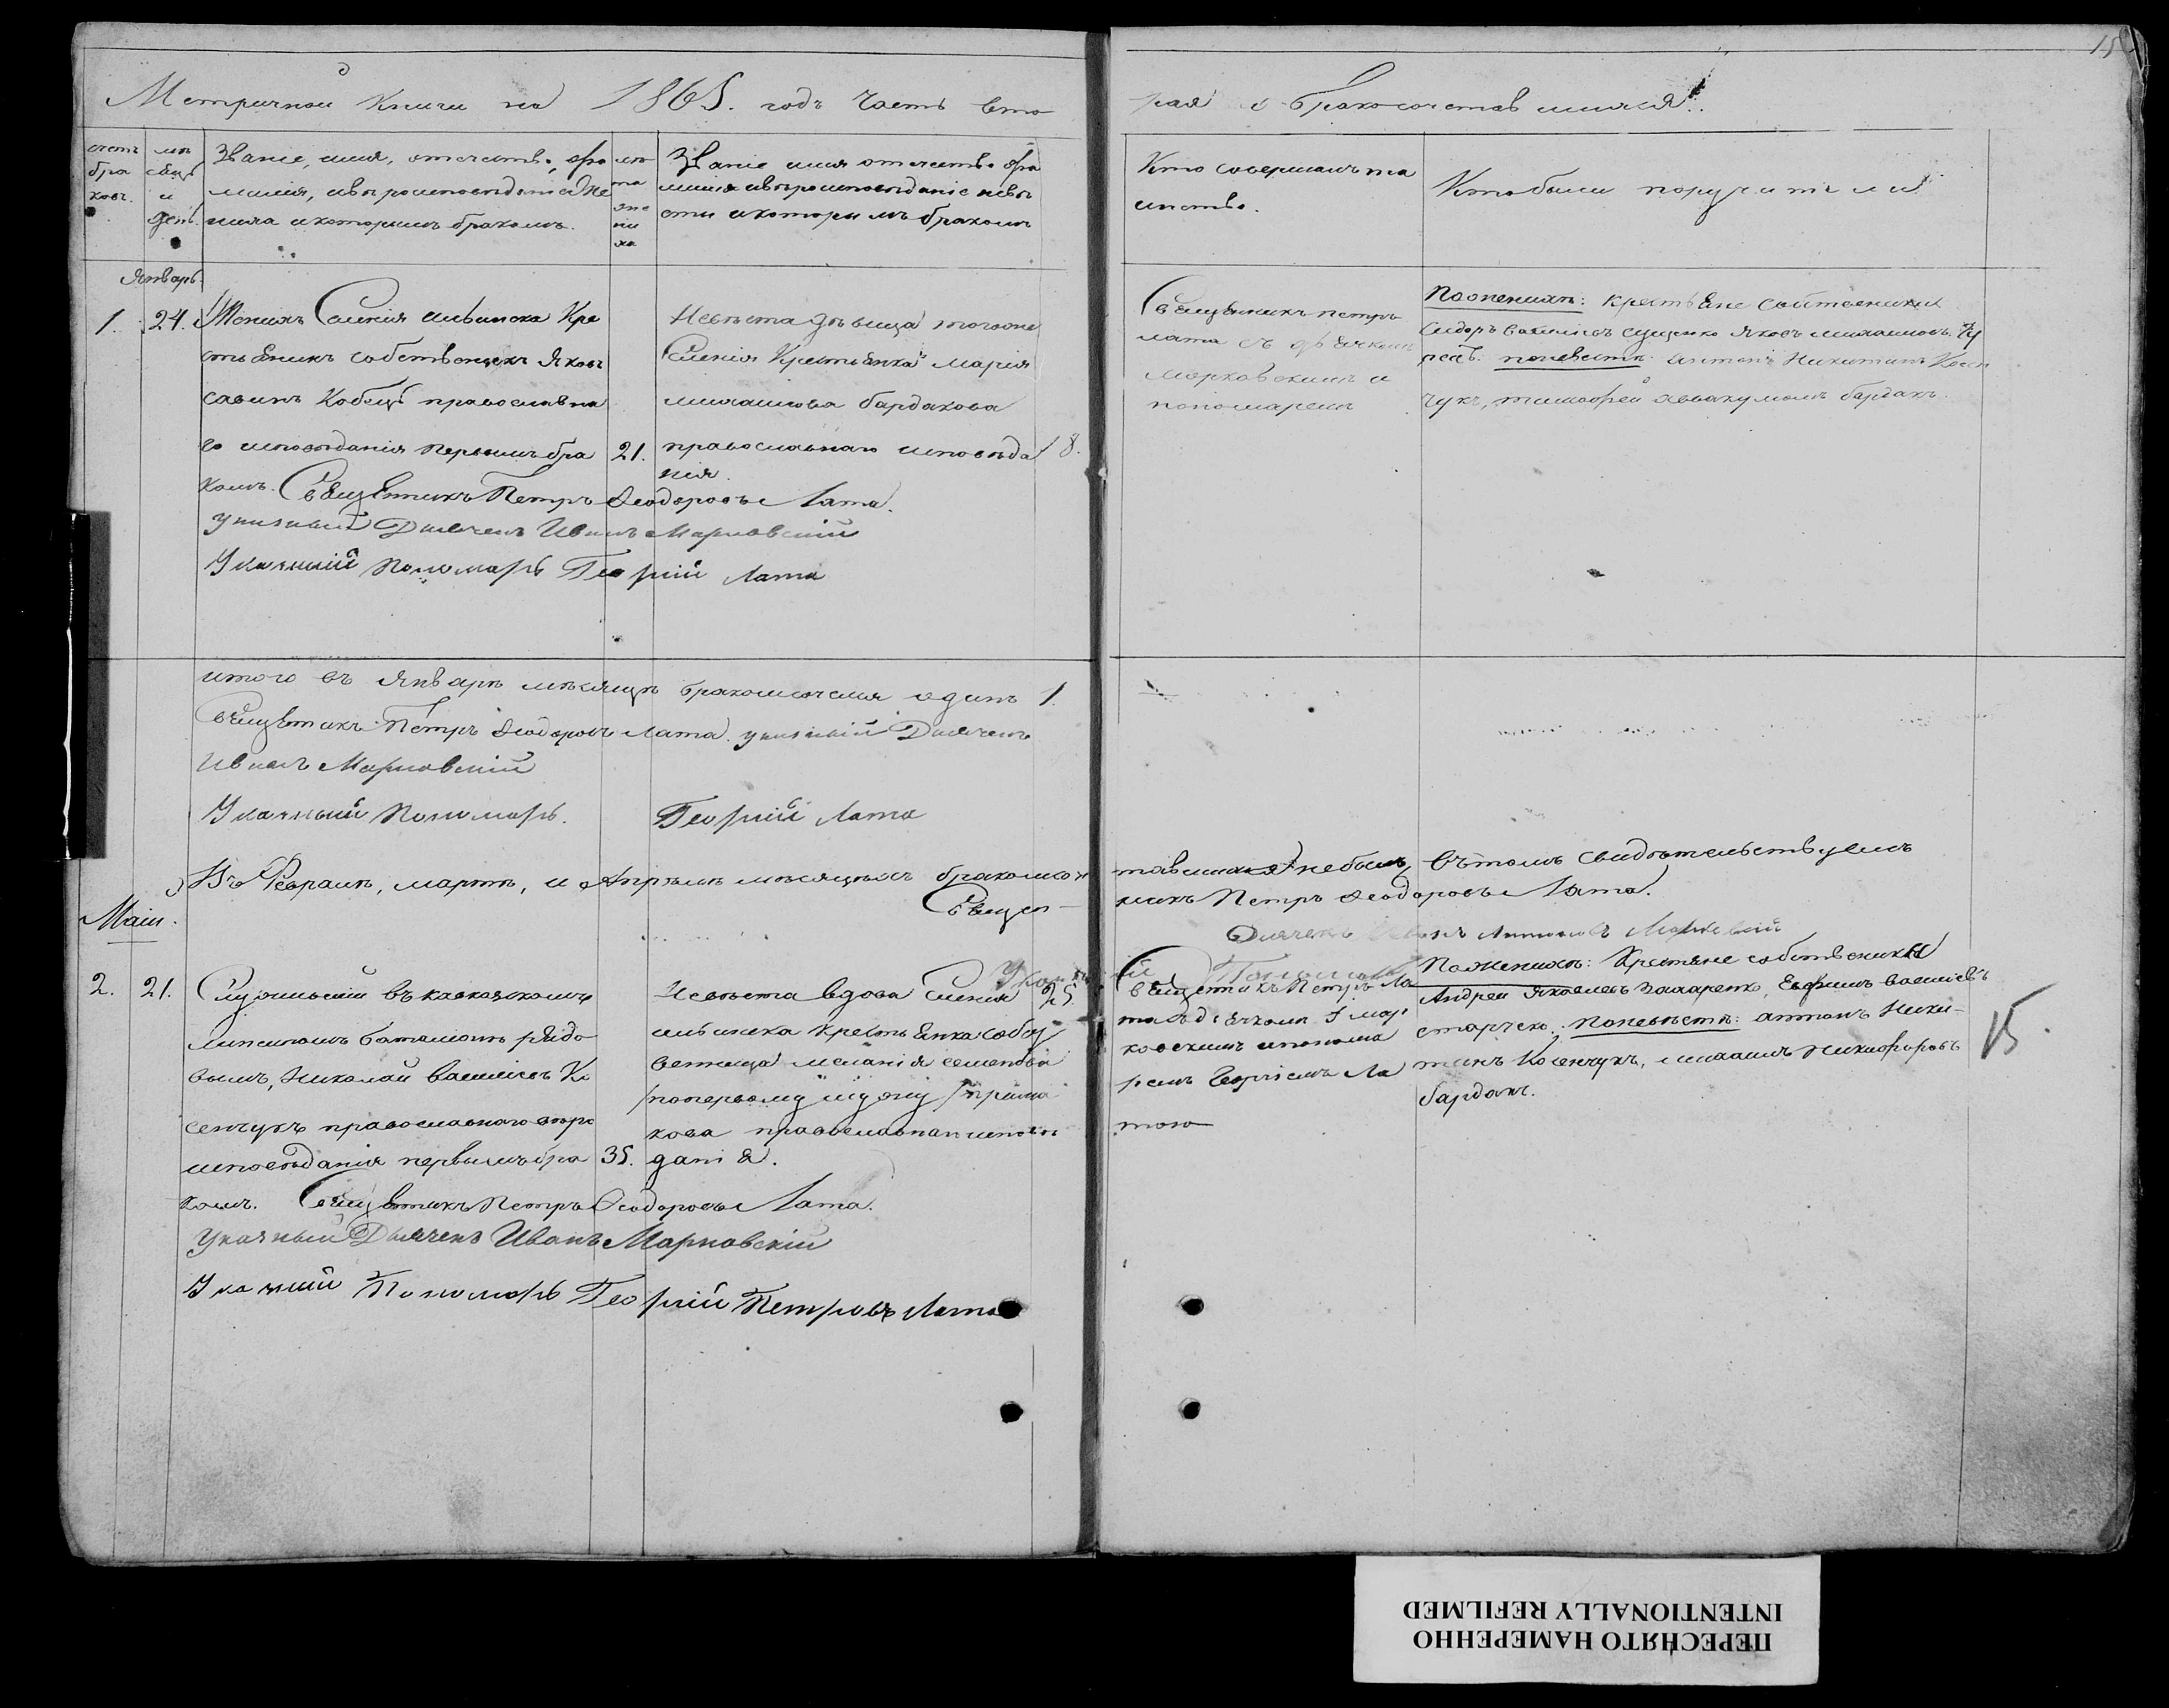 15
Метричной Книги на 1865. годъ Часть вто
рая о бракосочетавшихся.
счетъ браковъ.
мѣсяцъ и день.
Званіе, имя, отечество, фа
милія, и вѣроисповѣданіе же
ниха и которымъ бракомъ.
лѣта жениха
Званіе имя отечество фа
милія и вѣроисповѣданіе невѣ
сты и которымъ бракомъ
Кто совершалъ та
инство.
Кто были поручители
Январь.
1. 24. Женихъ Селенія Кре
стьянинъ собственникъ Яковъ
Савинъ Кобецъ православна
го исповѣданія первымъ бра 21.
комъ. Священникъ Петръ Ѳеодоровъ Лата.
Указный Дьячекъ Иванъ Марковскій
Указный Пономарь Георгій Лата
Невѣста дѣвица тогоже
Селенія Крестьянка Марія
бардакова
православнаго исповѣда 18.
нія.
Священникъ Петръ
Лата съ дьячкомъ
Марковскимъ и
пономаремъ
По женихѣ: крестьяне собственники
Сидоръ Яковъ
по невѣстѣ: Антонъ Никитинъ Косен
чукъ, Тимофей Аввакумовъ бардакъ.
итого въ Январѣ мѣсяцѣ одинъ 1.
Священникъ Петръ Ѳеодоровъ Лата. указный Дьячекъ
Иванъ Марковскій
Указный Пономарь. Георгій Лата
Въ Февралѣ, мартѣ, и Апрѣлѣ мѣсяцахъ бракосоче
тавшихся небыло, въ томъ свидѣтельствуемъ
Священ
никъ Петръ Ѳеодоровъ Лата.
Дьячекъ Иванъ Марковскій
Маій.
2. 21. Служившій въ кавказскомъ
Линейномъ баталіонѣ рядо
вымъ, Николай Васильевъ Ко
сенчукъ православнаго вѣро
исповѣданія первымъ бра 35.
комъ. Священникъ Петръ Ѳеодоровъ Лата.
Указный Дьячекъ Иванъ Марковскій
Указный Пономарь Георгій Петровъ Лата
Невѣста вдова Селенія 25
крестьянка собст
венница Меланія Семенова
по первому мужу
кова православнаго исповѣ
данія.
Священникъ Петръ Ла
та съ дьячкомъ Мар
ковскимъ и понома
ремъ Георгіемъ Ла
тою
По женихѣ: Крестяне собственики
Андрей Яковлевъ Захаренко, Евфимъ Васильевъ
старченко; по невѣстѣ: антонъ Ники-
тинъ Косенчукъ, Никифоровъ
бардакъ.
15.
ПЕРЕСНЯТО НАМЕРЕННО
INTENTIONALLY REFILMED